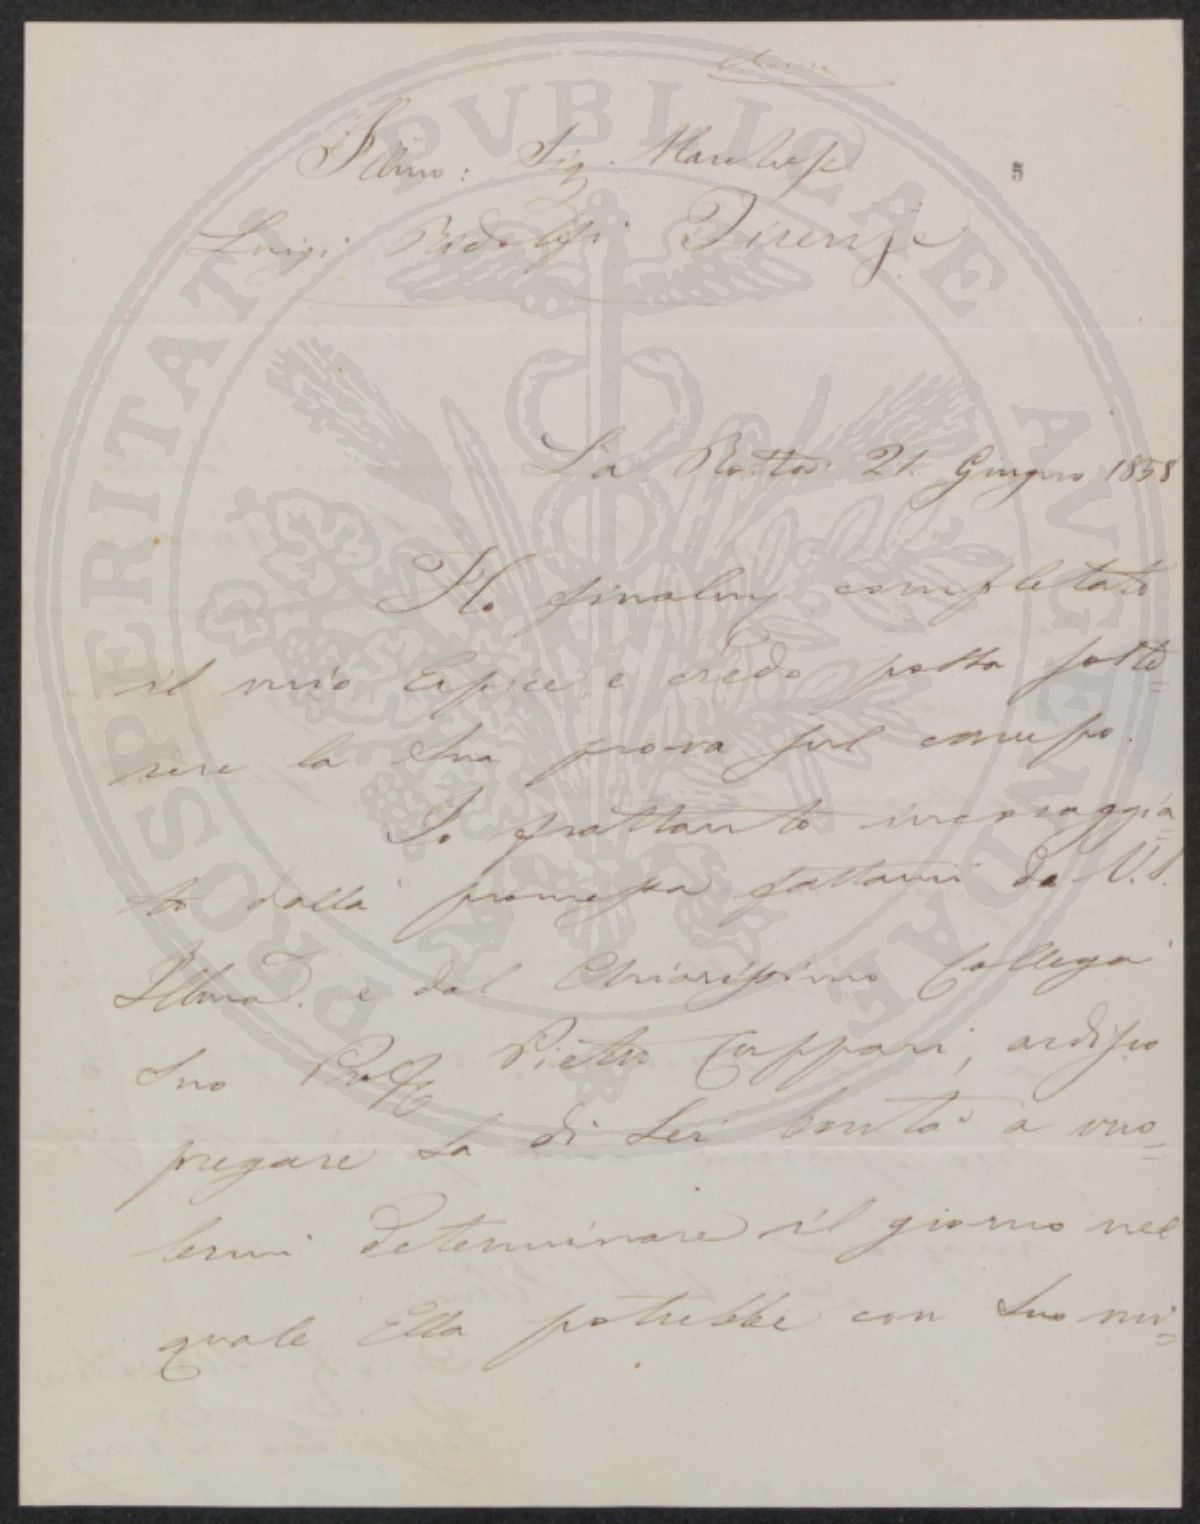 5
Illmo: Sig. Marchese
Luigi Ridolfi Firenze
La Rotta 21. Giugno 1858
Ho finalm. completato
il mio Erpice e credo possa soste=
nere la Sua prova sul campo.
Io frattanto incoraggia=
to dalla promessa fattami da V.S.
Illma. e dal Chiarissimo Collega
Suo Prof. Pietro Cuppari, ardisco
pregare La di Lei bontà a vuo=
lermi determinare il giorno nel
quale Ella potrebbe con Suo mi=
PROSPERITATI PVBLICAE AVGENDAE